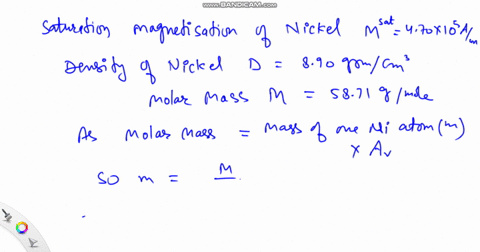 WWW.BANDICAM.COM
Saturation magnetisation of Nickel M^sat = 4.70×10^5 A/m
Density of Nickel D = 8.90 gm/cm³
Molar Mass M = 58.71 g/mole
As Molar Mass = Mass of one Ni atom (m)
× Av
SO m = M